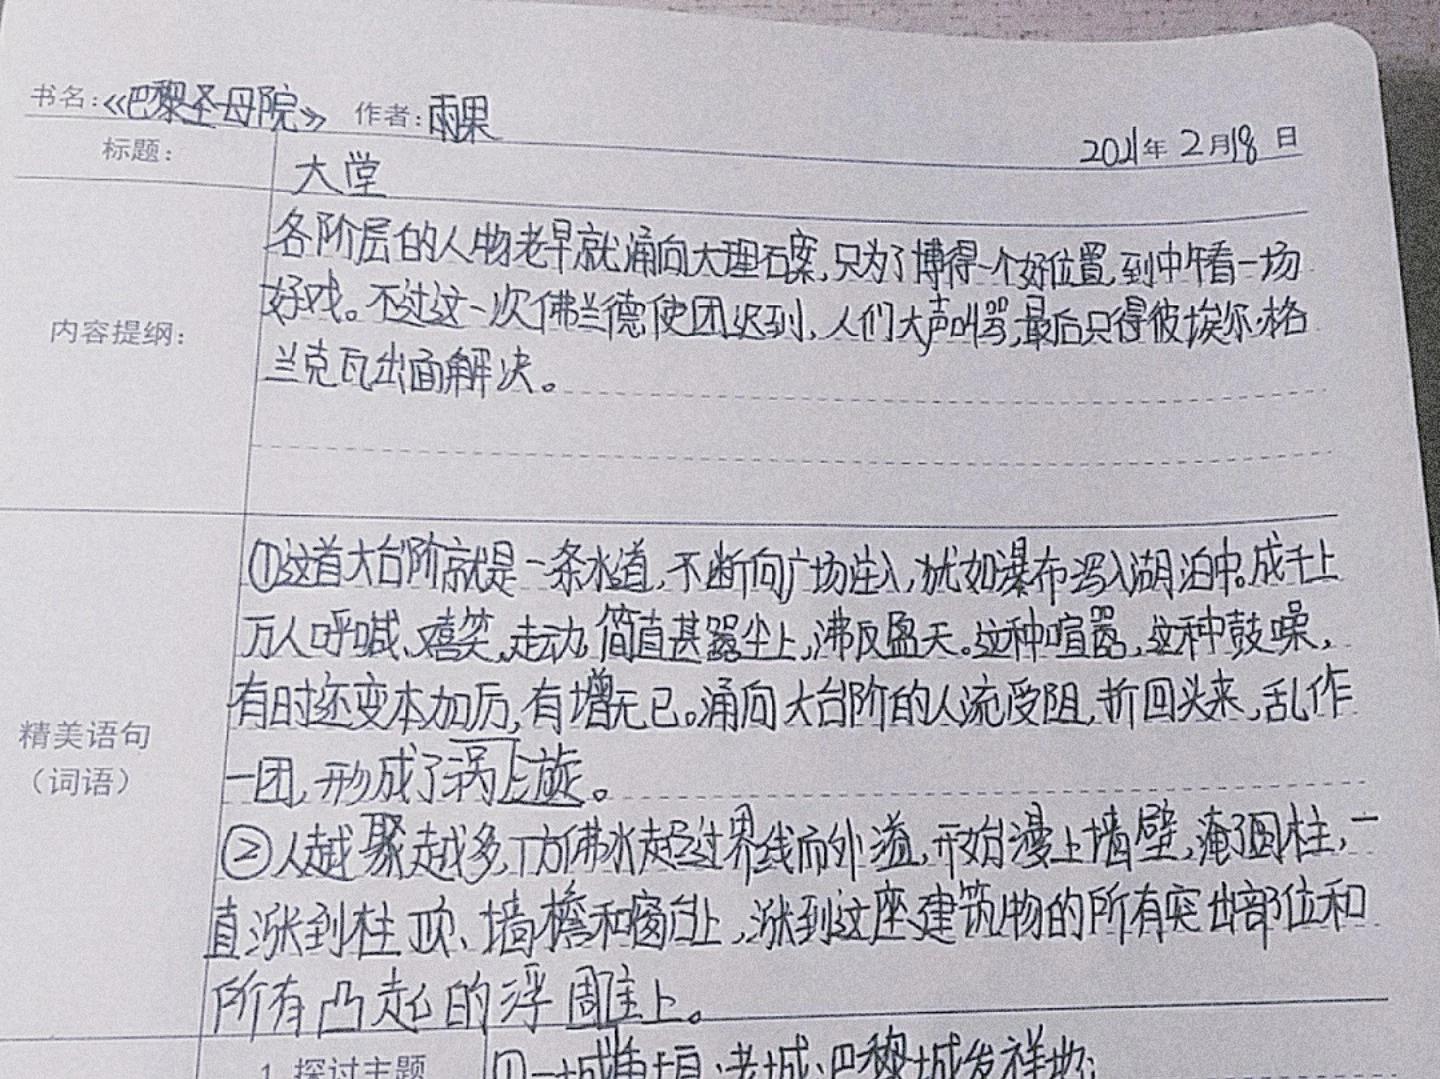 书名:《巴黎圣母院》 作者:雨果
2021年2月18日
标题: 大堂
各阶层的人物老早就涌向大理石案,只为了博得一个好位置,到中午看一场
好戏。不过这一次佛兰德使团迟到,人们大声叫骂,最后只得彼埃尔·格
内容提纲:
兰克瓦出面解决。
①这首大台阶就是一条水道,不断向广场注入,犹如瀑布泻入湖泊中。成千上
万人呼喊、嬉笑、走动,简直甚嚣尘上,沸反盈天。这种喧嚣,这种鼓噪,
有时还变本加厉,有增无已。涌向大台阶的人流受阻,折回头来,乱作
精美语句
(词语)
一团,形成了涡上旋。
②人越聚越多,仿佛水超过界线而外溢,开始漫上墙壁,淹了圆柱,一
直涨到柱顶、墙檐和窗台上,涨到这座建筑物的所有突出部位和
所有凸起的浮雕上。
1.探讨主题 ①一城堡:老城:巴黎城发祥地;